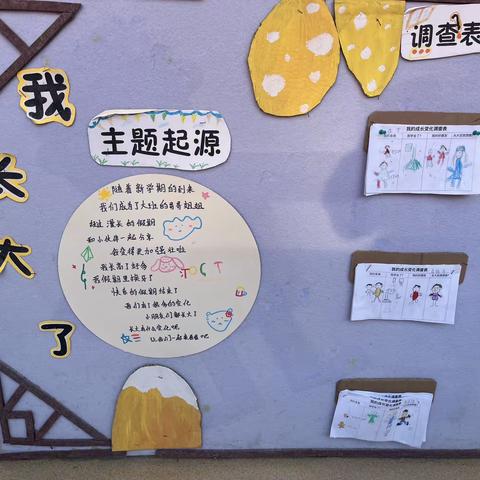 我
长
大
了
主题起源
随着新学期的到来
我们成为了大班的哥哥姐姐
越过漫长的假期
和小伙伴一起分享
我变得更加强壮啦
我长高了好多
我假期里换牙了
快乐的假期结束了
我们有了很多的变化
小朋友们都长大了
长大有什么变化呢
让我们一起来看看吧
调查表
我的成长变化调查表
我的成长变化调查表
我的成长变化调查表